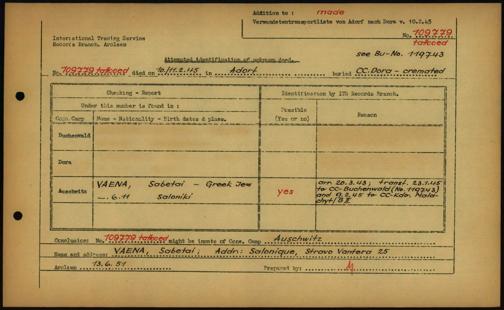 Addition to : made
Verwundetentransportliste von Adorf nach Dora v. 10.2.45
International Tracing Service
Records Branch, Arolsen
No. 109779
tattooed
see Bu-No. 119743
Attempted identification of unknown dead.
No. 109779 tattooed died on 10./11.2.45 in Adorf buried CC. Dora - cremated
Checking - Report
Identification by ITS Records Branch.
Under this number is found in :
Possible
(Yes or no)
Reason
Conc. Camp
Name - Nationality - Birth dates & place.
Buchenwald
Dora
Auschwitz
VAENA, Sabetai - Greek Jew
_._6.11 Saloniki
yes
arr. 20.3.43; transf. 23.1.45
to CC-Buchenwald (No. 119743)
Conclusion: No. 109779 tattooed might be inmate of Conc. Camp Auschwitz
Name and address: VAENA, Sabetai, Addr: Salonique, Stravo Vantera 25
Arolsen 13.6.51
Prepared by: